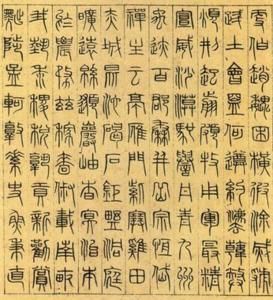 更霸趙魏困橫假途滅虢
踐土會盟何遵約法韓弊
煩刑起翦頗牧用軍最精
宣威沙漠馳譽丹青九州
禹跡百郡秦并嶽宗恆岱
禪主云亭雁門紫塞雞田
赤城昆池碣石鉅野洞庭
曠遠綿邈巖岫杳冥治本
於農務茲稼穡俶載南畝
我藝黍稷稅熟貢新勸賞
黜陟孟軻敦素史魚秉直